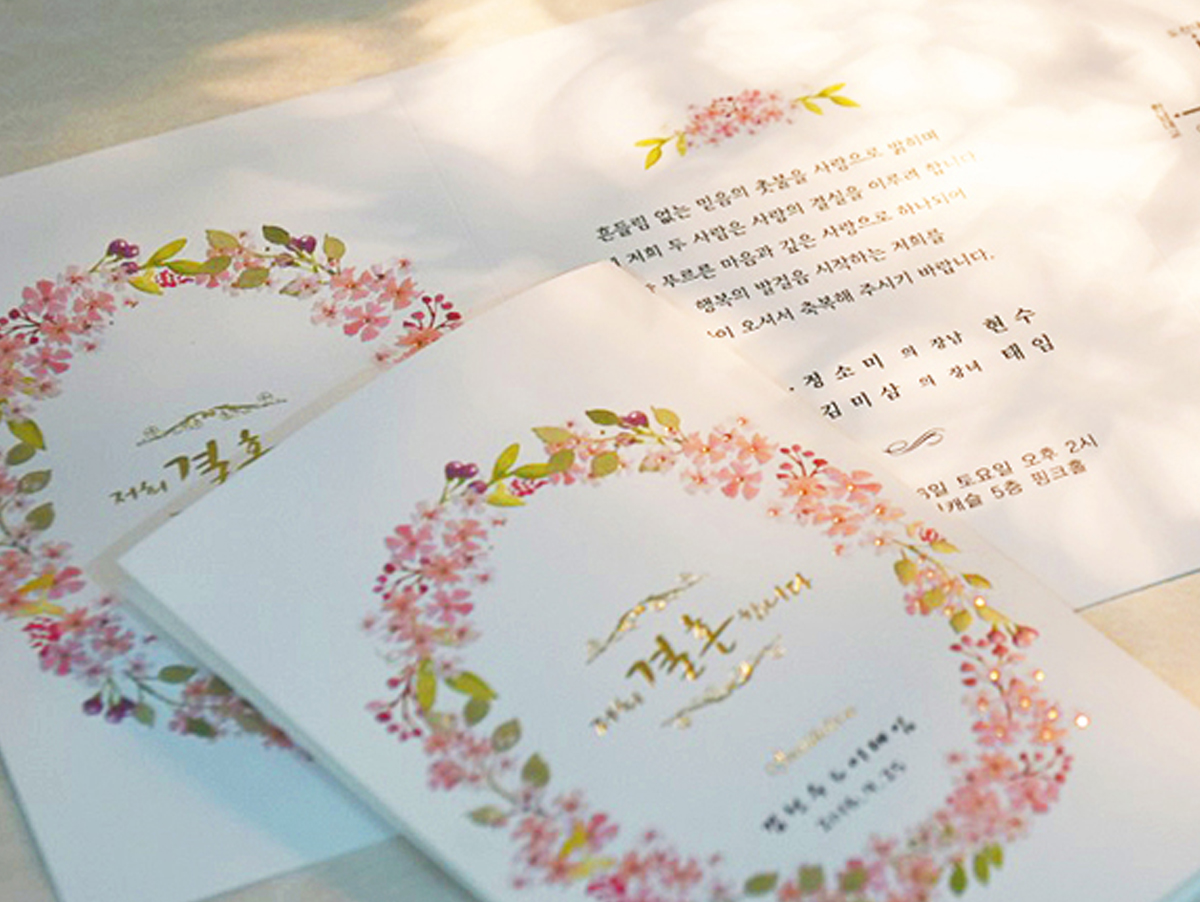 흔들림 없는 믿음의 촛불을 사랑으로 밝히며
저희 두 사람은 사랑의 결실을 이루려 합니다
푸르른 마음과 깊은 사랑으로 하나되어
행복의 발걸음을 시작하는 저희를
오셔서 축복해 주시기 바랍니다.
정소미 의 장남 현수
김미삼 의 장녀 태임
일 토요일 오후 2시
캐슬 5층 핑크홀
저희 결혼
저희 결혼 합니다